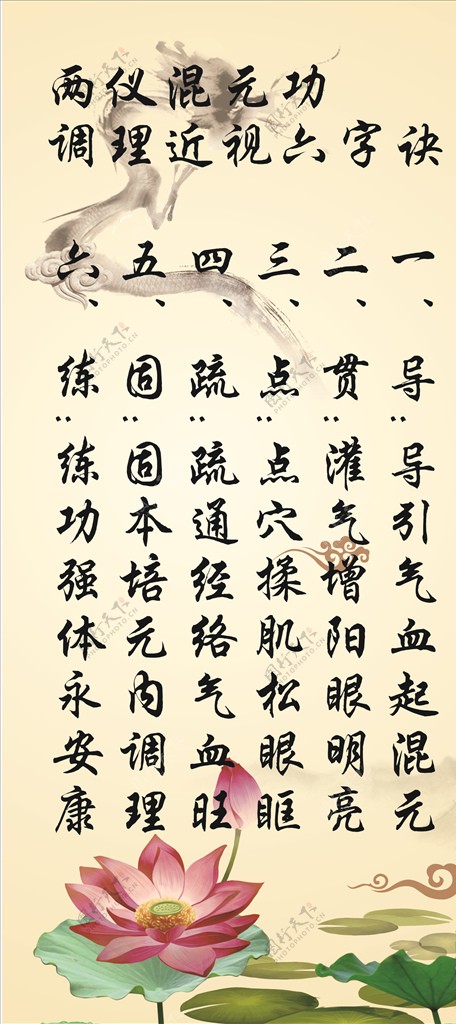 两仪混元功
调理近视六字诀
一、导：导引气血起混元
二、贯：灌气增阳眼明亮
三、点：点穴揉肌松眼眶
四、疏：疏通经络气血旺
五、固：固本培元内调理
六、练：练功强体永安康